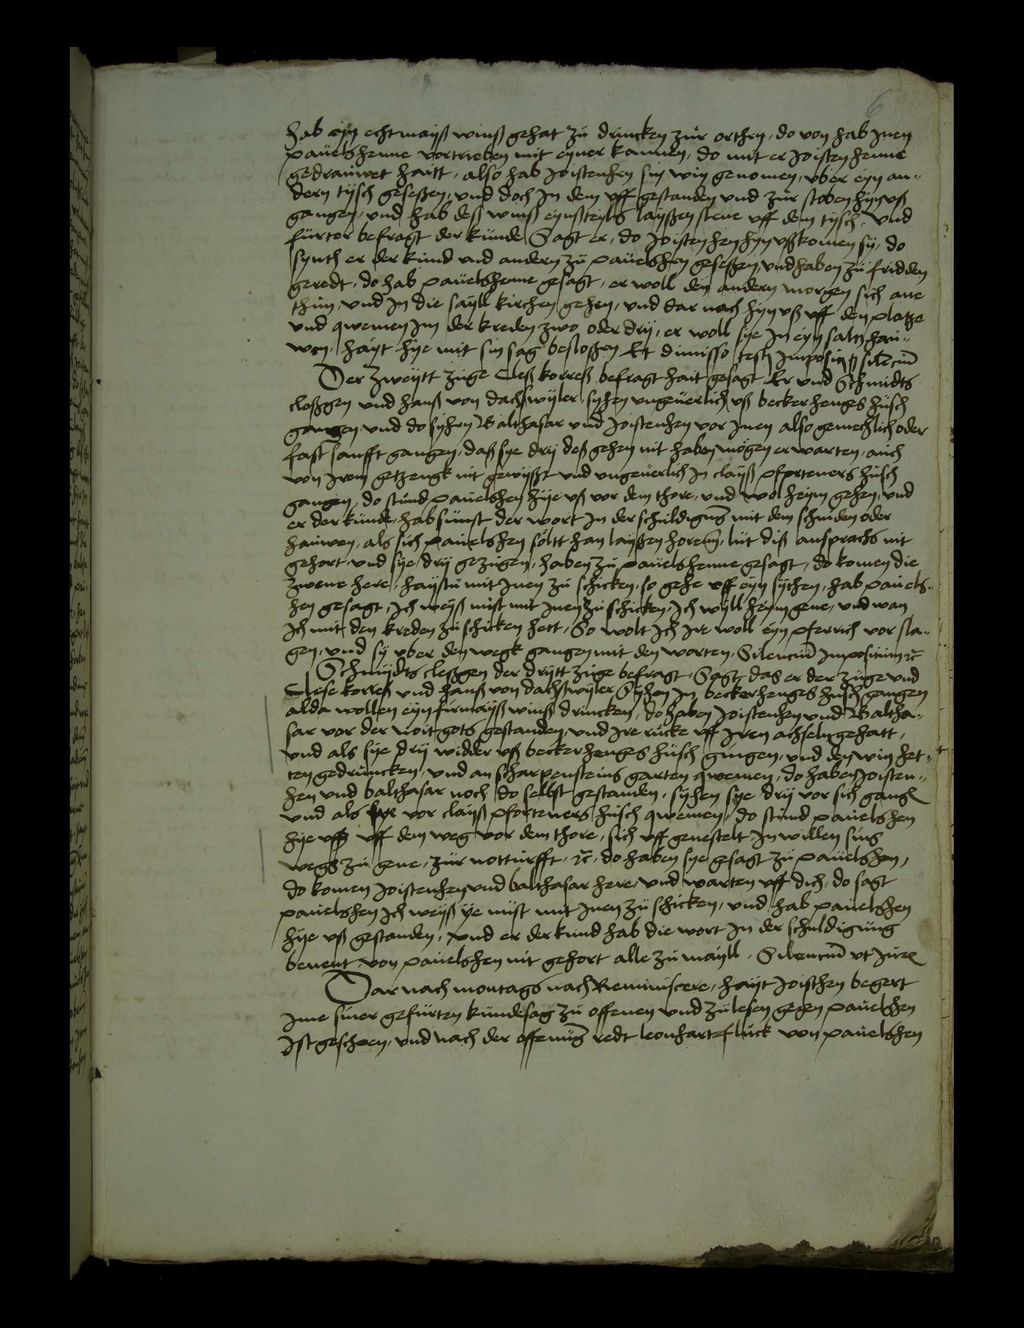 6
hab eyn echtmaiß winß gehat zu drincken zur orthen, do von hab Inen
pauelshenne vortrieben mit eyner kannen, do mit er Joisten henne
gedrauwet haitt, also hab Joistenhen sin win genomen, vber eyn an-
dern tysch geseßen, vnd doch In dem vff gestanden vnd zur stoben hynvß
gangen, vnd hab deß winß eynsteyls layßen stene vff dem tysch, vnd
furter befragt der kunde Sagt er, do Joistenhen hynvßkomen sy, do
synth er der kund vnd andern zu pauelshen geseßen, vnd haben zu fridden
geredt, do hab pauelshenne gesagt, er woll den andern morgen sich ane
thun, vnd In die sayll kirchen gehen, vnd dar nach hyn vß vff den platze
vnd qwemen Im der kreden zwo oder dry, er woll sye In eyn saltz hau-
wen, hayt hye mit sin sag besloßen Et dimisso testi Imposui silenciu
Der zweytt zuge Cleß korreß befragt hait gesagt Er vnd Schmidts
cloßgen vnd hanß von dachswyler syhen vngeuerlich vß beckerhenges husch
gangen, vnd do syhen Balthasar vnd Joistenhen vor Inen also gemechlich oder
fast sanfft gangen, daß sye dry deß gehen nit haben mogen erwarten, auch
von Irem getzengk nit gewißt vnd vngeuerlich In clayß pforteners husch
gangen, do stund pauelshen hye vß vor dem thore, vnd wol heym gehen, vnd
er der kunde, hab sunst der wort In der schuldigung mit dem schniden oder
hauwen, als sich pauelshen soltt han layßen horenn, lut diß ansprachs nit
gehort, vnd sye dry gezugen, haben zu pauelshenne gesagt, do komen die
zwene here, haystu mit Inen zu schicken, so gehe vff eyn sythen, hab pauels-
hen gesagt, Ich weyß nust mit Inen zu schicken, Ich wyll heym gene, vnd wan
Ich mit den kreden zu schicken hett, So wolt Ich Ire woll eyn pferrich vor sla-
gen, vnd sy vber den wegk gangen mit den worten, Silenciu Impositum etc
Schmydts cleßgen der drytt zuge befragt, Sagt, das er der zuge vnd
Clese korreß vnd hanß von dachswyler Syhen In beckerhenges husch gangen
alda wollen eyn furmayß winß drincken, do haben Joistenhen vnd Baltha-
sar vor der voit gots gestanden, vnd Ire rucke vff Iren achseln gehatt,
vnd als sye dry widder vß beckerhenges husch gingen, vnd den win het-
ten gedruncken, vnd an scharpensteins garten qwemen, do haben Joisten-
hen vnd balthasar noch do selbst gestanden, syhen sye dry vor sich gangen
vnd als sye vor clayß pforteners husch qwemen, do stund pauelshen
hye vß vff dem weg vor dem thore, sich vff genestelt In willen sins
wegs zu gene, zur notturfft, etc, do haben sye gesagt zu pauelshen,
do komen Joistenhen vnd balthasar here, vnd warten vff dich, do sagt
pauelshen Ich weyß ye nust mit Inen zu schicken, vnd hab pauelshen
hye vß gestanden, vnd er der kund hab die wort In der schuldigung
benent von pauelshen nit gehort alle zu mayll. Silenciu vt Jure
Dar nach montags nach Reminiscere, hayt Joisthen begert
Ime siner gefurten kundesag zu offenen vnd zulesen gegen pauelshen
Ist gescheen, vnd nach der offenung redt leonhart fluck von pauelshen